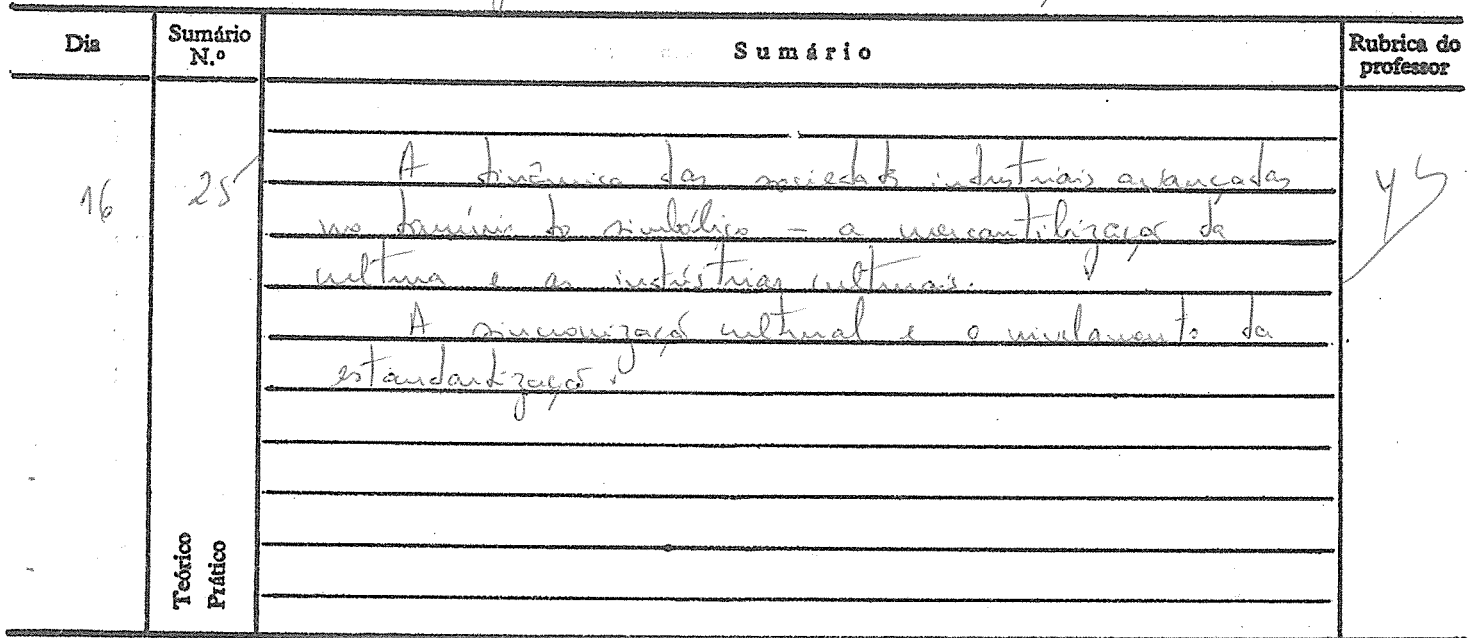 Dia
Sumário N.º
Sumário
Rubrica do professor
16
25
A dinâmica das sociedades industriais avançadas
no domínio do simbólico – a mercantilização da
cultura e as indústrias culturais.
A sincronização cultural e o nivelamento da
estandartização.
Teórico
Prático